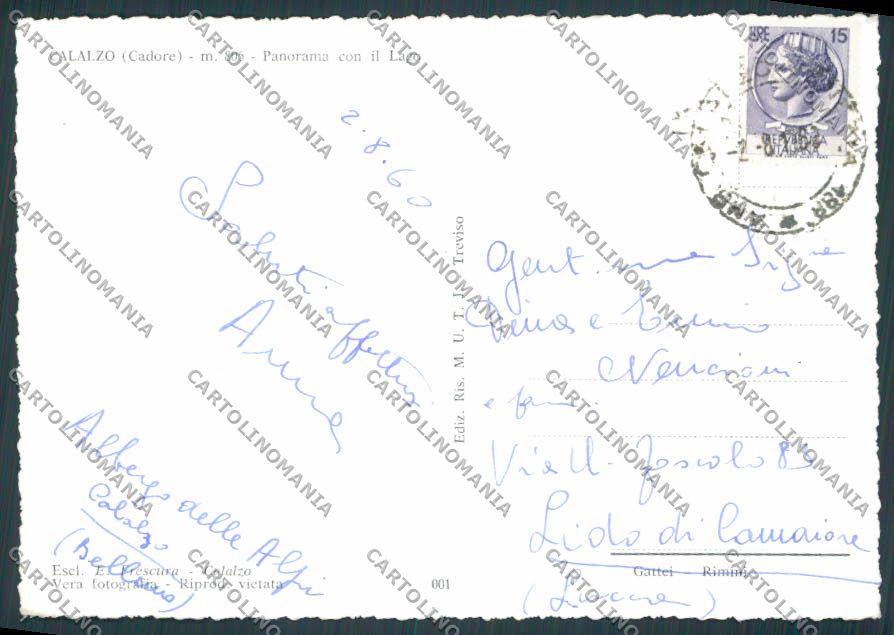 CALALZO (Cadore) - m. 806 - Panorama con il Lago
2.8.60
Saluti affettuosi
Anna
Albergo delle Alpi
Calalzo
(Belluno)
Escl. E. Frescura - Calalzo
Vera fotografia - Riprod. vietata
001
Ediz. Ris. M. U. T. I. - Treviso
LIRE 15
REPVBBLICA
D'ITALIANA
Gent.me Sig.ne
e
Nencioni
e fam.
Via U. Foscolo 83
Lido di Camaiore
Gattei - Rimini
(Lucca)
CARTOLINOMANIA